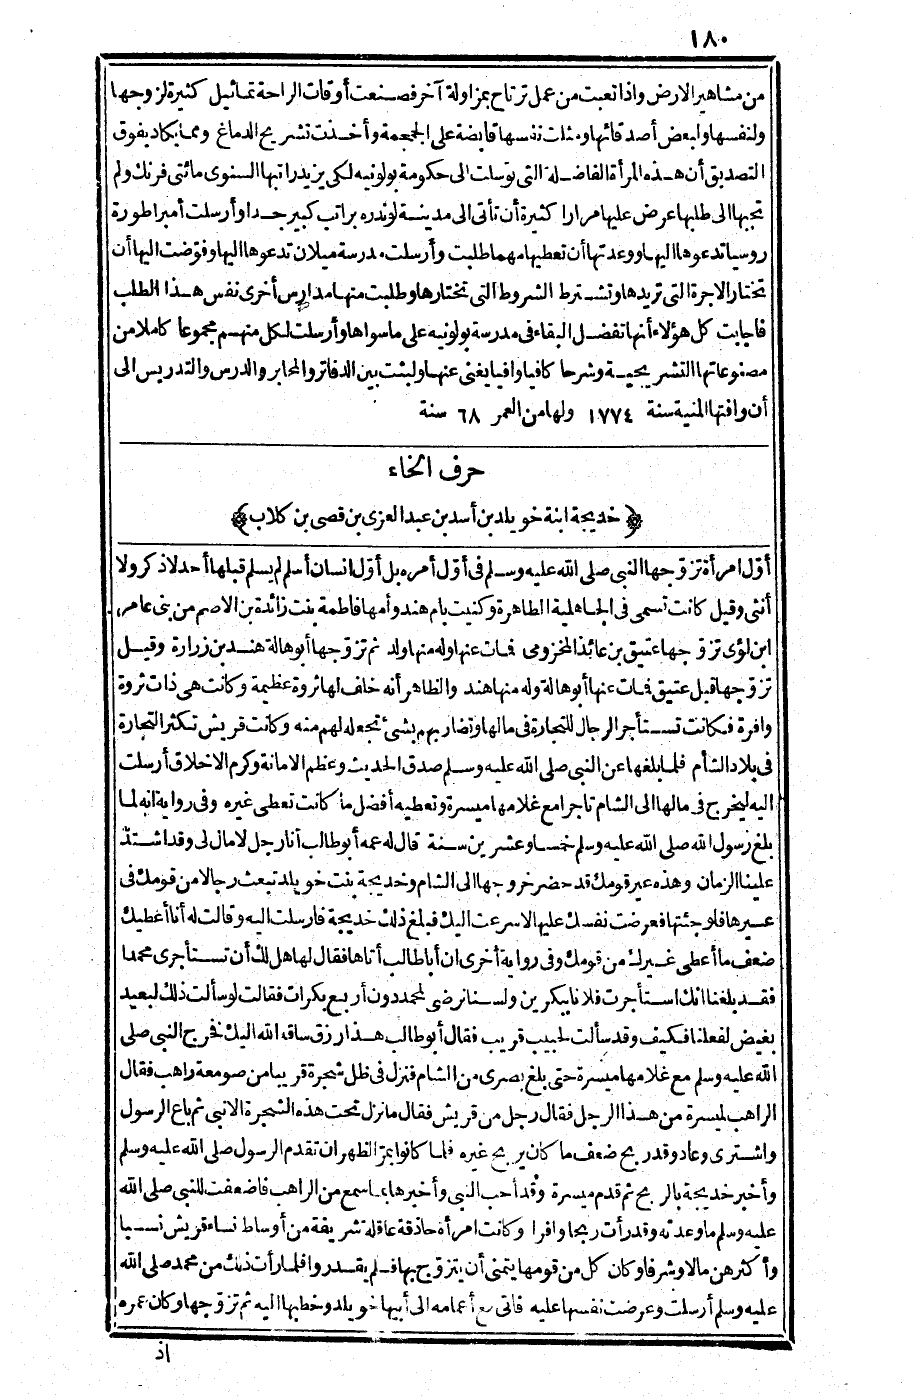 ١٨٠
من مشاهير الارض واذا تعبت من عمل ترتاح بمزاولة آخر فصنعت أوقات الراحة تماثيل كثيرة لزوجها
ولنفسها ولبعض أصدقائها ومثلت نفسها قابضة على الجمجمة وأخذت تشريح الدماغ ومما يكاد يفوق
التصديق أن هذه المرأة الفاضلة التى توسلت الى حكومة بولونيه لكى يزيد راتبها السنوى مائتى فرنك ولم
تجبها الى طلبها عرض عليها مرارا كثيرة أن تأتى الى مدينة لوندره براتب كبير جدا وأرسلت أمبراطورة
روسيا تدعوها اليها ووعدتها أن تعطيها مهما طلبت وأرسلت مدرسة ميلان تدعوها اليها وفوّضت اليها أن
تختار الاجرة التى تريدها وتشترط الشروط التى تختارها وطلبت منها مدارس أخرى نفس هذا الطلب
فاجابت كل هؤلاء أنها تفضل البقاء فى مدرسة بولونيه على ماسواها وأرسلت لكل منهم مجموعا كاملا من
مصنوعاتها التشريحية وشرحا كافيا وافيا يغنى عنها ولبثت بين الدفاتر والمحابر والدرس والتدريس الى
أن وافتها المنية سنة ١٧٧٤ ولها من العمر ٦٨ سنة
حرف الخاء
﴿خديجة ابنة خويلد بن أسد بن عبد العزى بن قصى بن كلاب﴾
أوّل امرأة تزوّجها النبى صلى الله عليه وسلم فى أوّل أمره بل أوّل انسان أسلم لم يسلم قبلها أحد لا ذكر ولا
أنثى وقيل كانت تسمى فى الجاهلية الطاهرة وكنيت بام هند وأمها فاطمة بنت زائدة بن الاصم من بنى عامر
ابن لؤى تزوّجها عتيق بن عائذ المخزومى فمات عنها وله منها ولد ثم تزوّجها أبو هالة هند بن زرارة وقيل
تزوّجها قبل عتيق فمات عنها أبو هالة وله منها هند والظاهر أنه خلف لها ثروة عظيمة وكانت هى ذات ثروة
وافرة فكانت تستأجر الرجال للتجارة فى مالها وتضاربهم بشئ تجعله لهم منه وكانت قريش تكثر التجارة
فى بلاد الشأم فلما بلغها عن النبى صلى الله عليه وسلم صدق الحديث وعظم الامانة وكرم الاخلاق أرسلت
اليه ليخرج فى مالها الى الشام تاجرا مع غلامها ميسرة وتعطيه أفضل ما كانت تعطى غيره وفى رواية انه لما
بلغ رسول الله صلى الله عليه وسلم خمسا وعشرين سنة قال له عمه أبو طالب أنا رجل لا مال لى وقد اشتدّ
علينا الزمان وهذه عير قومك قد حضر خروجها الى الشام وخديجة بنت خويلد تبعث رجالا من قومك فى
عيرها فلو جئتها فعرضت نفسك عليها لاسرعت اليك فبلغ ذلك خديجة فارسلت اليه وقالت له أنا أعطيك
ضعف ما أعطى غيرك من قومك وفى رواية أخرى ان أبا طالب أتاها فقال لها هل لك أن تستأجرى محمدا
فقد بلغنا انك استأجرت فلانا ببكرين ولسنا نرضى لمحمد دون أربع بكرات فقالت لو سألت ذلك لبعيد
بغيض لفعلنا فكيف وقد سألت لحبيب قريب فقال أبو طالب هذا رزق ساقه الله اليك فخرج النبى صلى
الله عليه وسلم مع غلامها ميسرة حتى بلغ بصرى من الشام فنزل فى ظل شجرة قريبا من صومعة راهب فقال
الراهب لميسرة من هذا الرجل فقال رجل من قريش فقال ما نزل تحت هذه الشجرة الا نبى ثم باع الرسول
واشترى وعاد وقد ربح ضعف ما كان يربح غيره فلما كانوا بمرّ الظهران تقدم الرسول صلى الله عليه وسلم
وأخبر خديجة بالربح ثم قدم ميسرة وقد أحب النبى وأخبرها بما سمع من الراهب فاضعفت للنبى صلى الله
عليه وسلم ما وعدته وقد رأت ربحا وافرا وكانت امرأة حاذقة عاقلة شريفة من أوساط نساء قريش نسبا
وأكثرهن مالا وشرفا وكان كل من قومها يتمنى أن يتزوّج بها فلم يقدروا فلما رأت ذلك من محمد صلى الله
عليه وسلم أرسلت وعرضت نفسها عليه فاتى مع أعمامه الى أبيها خويلد وخطبها اليه ثم تزوّجها وكان عمره
اذ